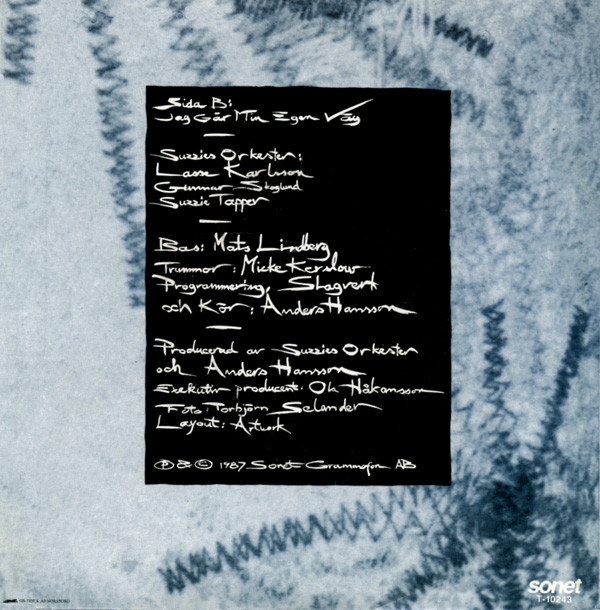 Sida B:
Jag Går Min Egen Väg
Suzzies Orkester:
Lasse Karlsson
Gunnar Skoglund
Suzzie Tapper
Bas: Mats Lindberg
Trummor: Micke Kerslow
Programmering, Slagverk
och Kör: Anders Hansson
Producerad av Suzzies Orkester
och Anders Hansson
Exekutiv producent: Ola Håkansson
Foto: Torbjörn Selander
Layout: Artwork
Ⓟ & © 1987 Sonet Grammofon AB
sonet
T-10243